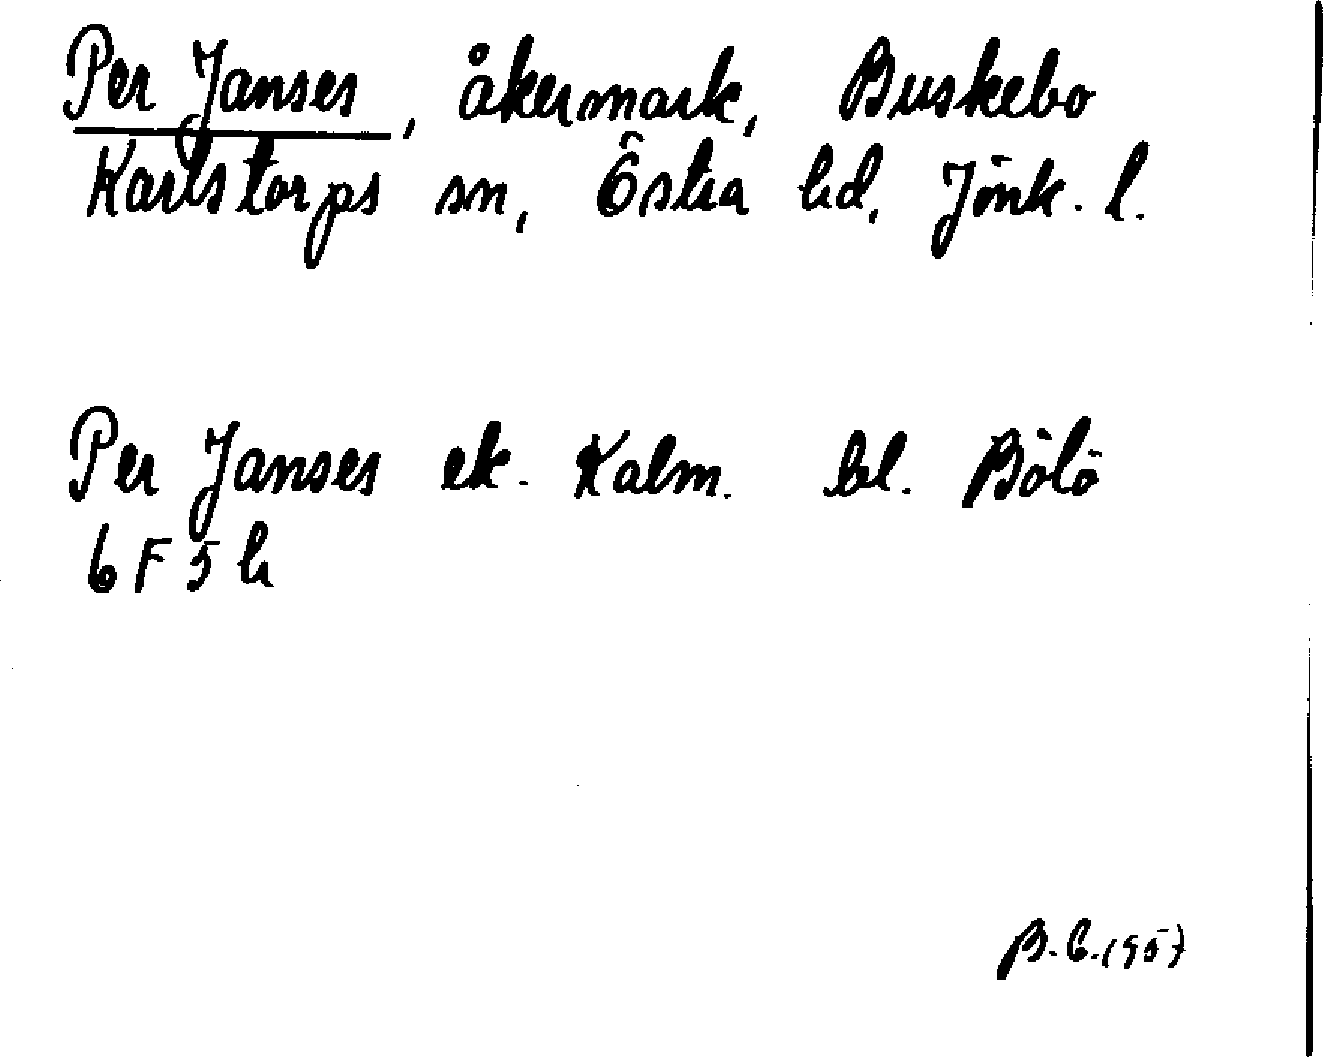 Per Janses, åkermark, Buskebo
Karlstorps sn, Östra hd, Jönk. l.
Per Janses ek. Kalm. bl. Bölö
6 F 5 h